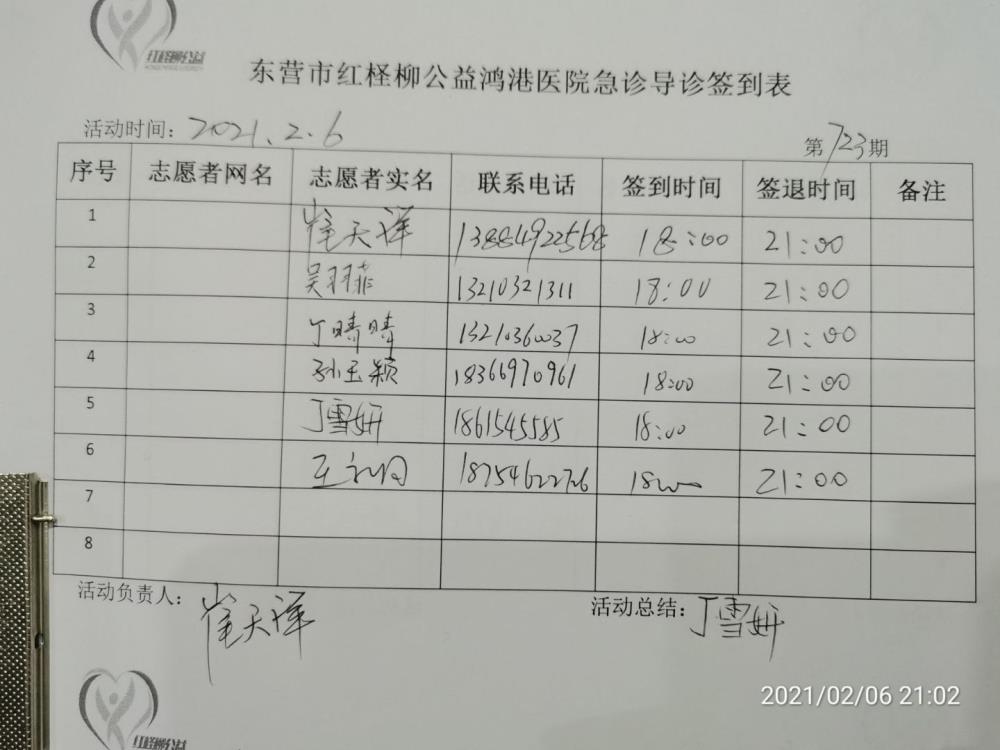 红柽柳公益
东营市红柽柳公益鸿港医院急诊导诊签到表
活动时间：2021.2.6
第723期
序号 志愿者网名 志愿者实名 联系电话 签到时间 签退时间 备注
1 崔天洋 13884922568 18:00 21:00
2 吴羽菲 13210321311 18:00 21:00
3 丁晴晴 13210360037 18:00 21:00
4 孙玉颖 18366970961 18:00 21:00
5 丁雪妍 1861545585 18:00 21:00
6 王 18754622726 18:00 21:00
7
8
活动负责人：崔天洋
活动总结：丁雪妍
红柽柳公益
2021/02/06 21:02